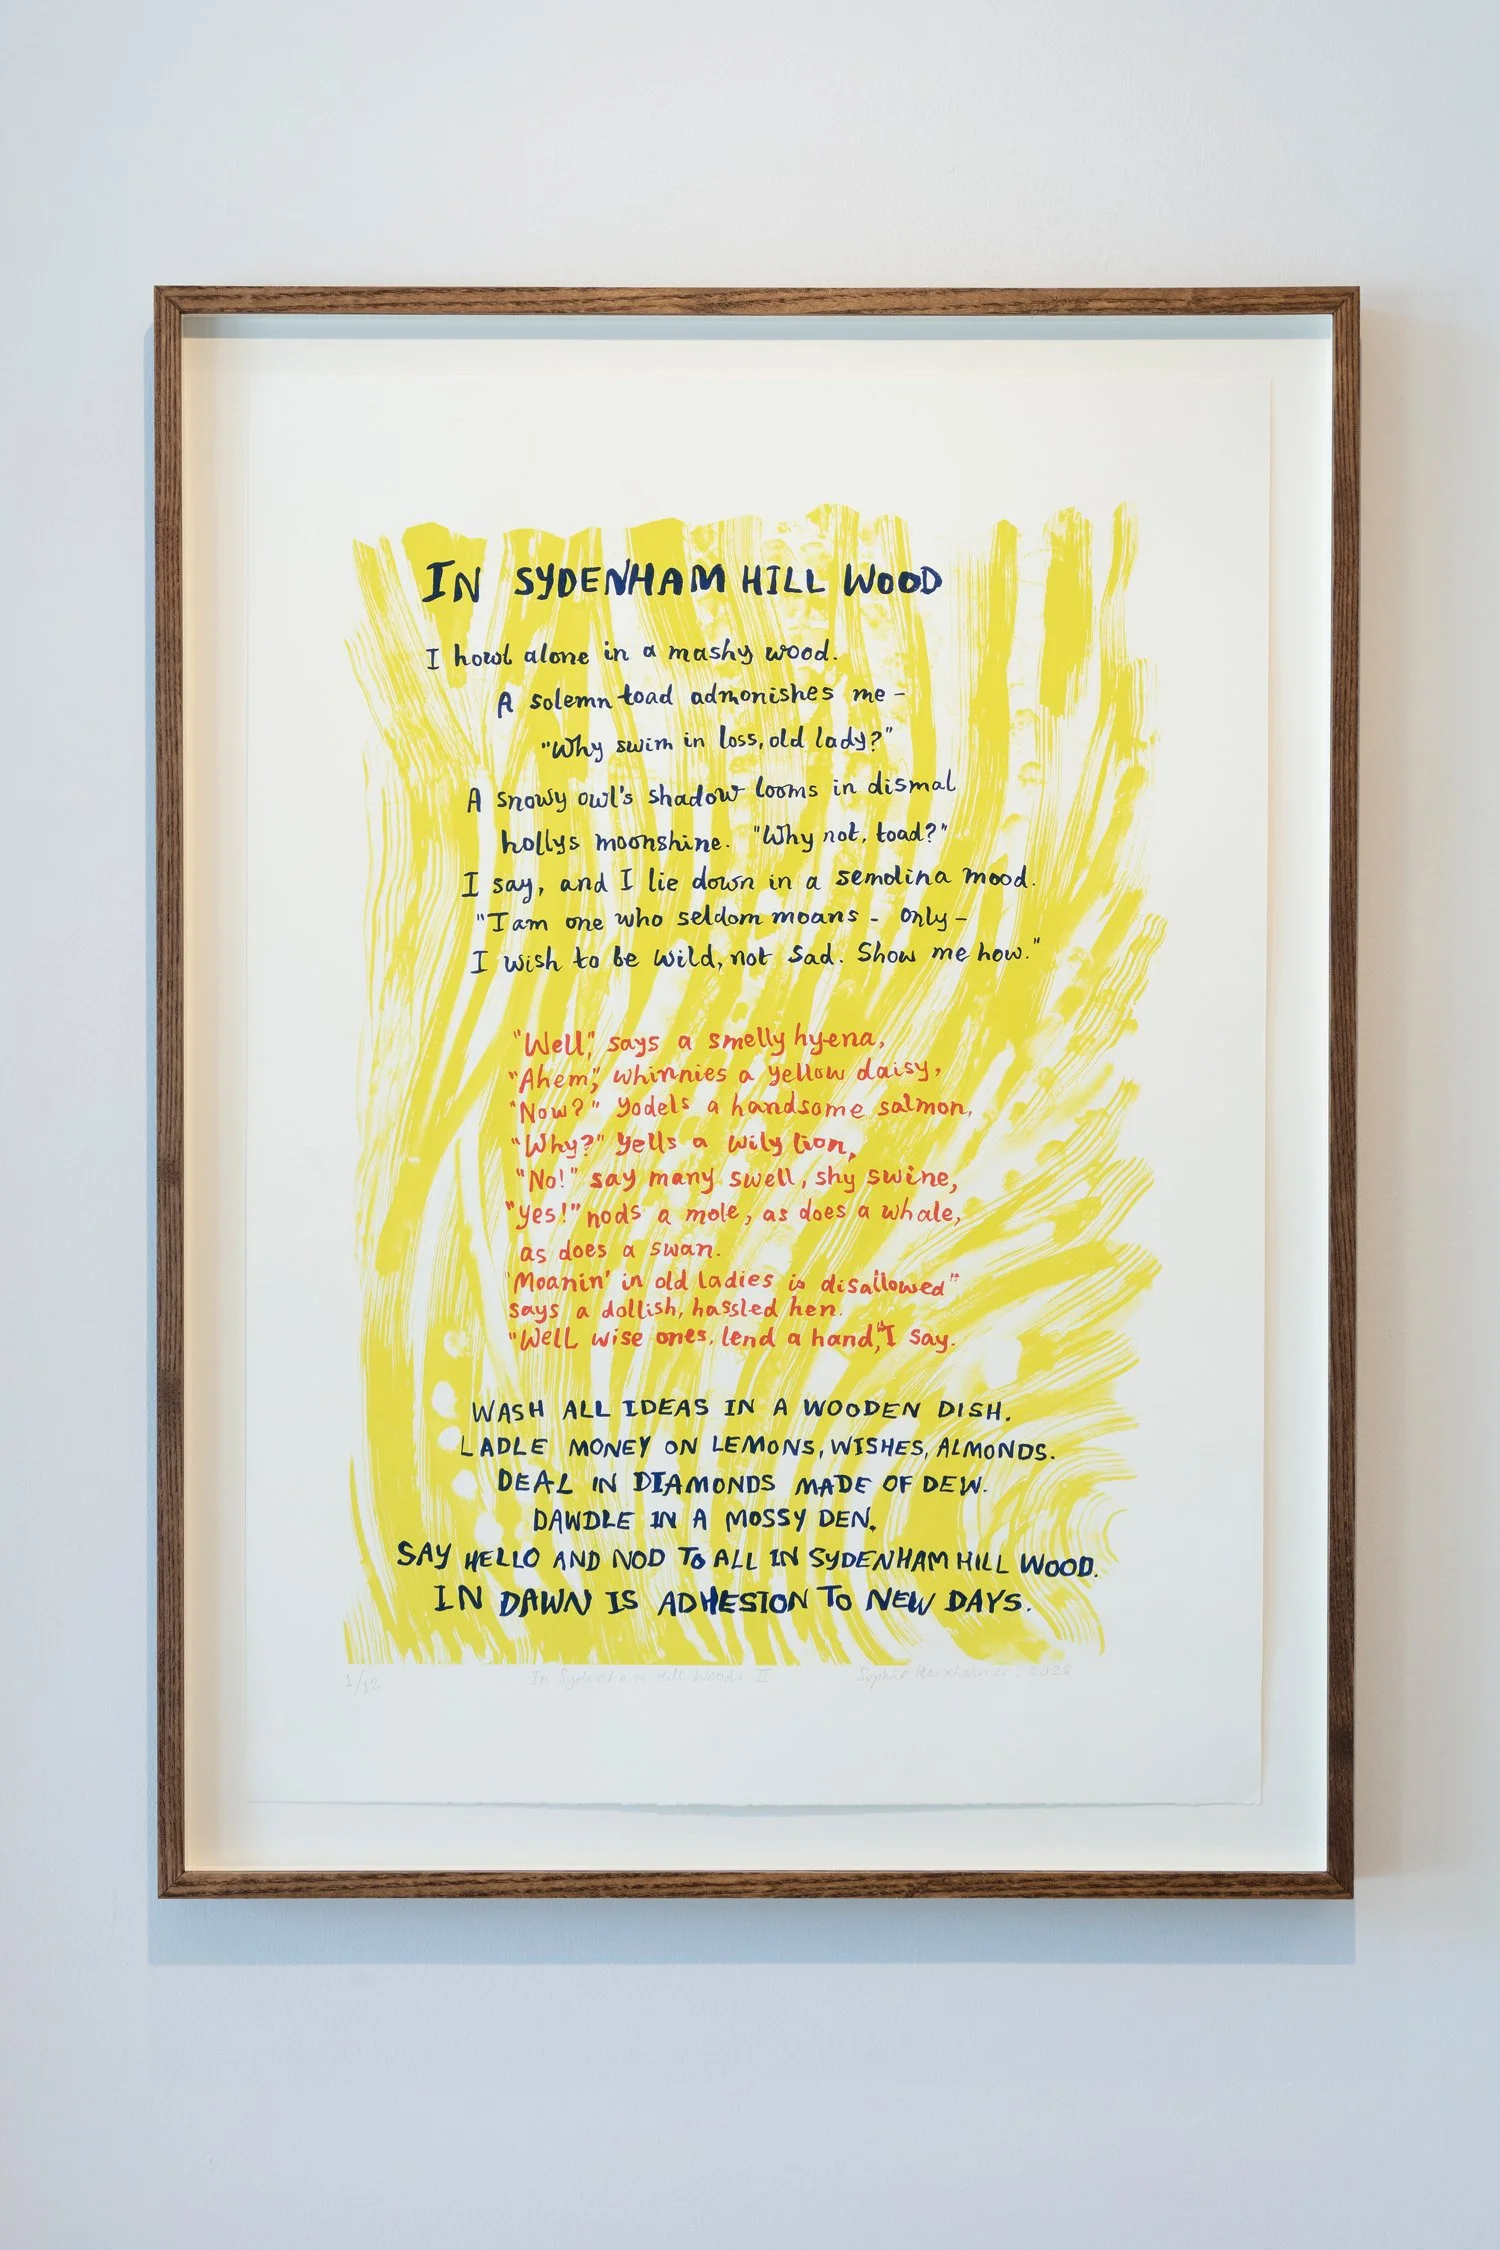 IN SYDENHAM HILL WOOD
I howl alone in a mashy wood.
A solemn toad admonishes me -
"Why swim in loss, old lady?"
A snowy owl's shadow looms in dismal
hollys moonshine. "Why not, toad?"
I say, and I lie down in a semolina mood.
"I am one who seldom moans - only -
I wish to be wild, not sad. Show me how."
"Well", says a smelly hyena,
"Ahem", whinnies a yellow daisy,
"Now?" yodels a handsome salmon,
"Why?" yells a wily lion,
"No!" say many swell, shy swine,
"Yes!" nods a mole, as does a whale,
as does a swan.
"Moanin' in old ladies is disallowed"
says a dollish, hassled hen.
"Well wise ones, lend a hand," I say.
WASH ALL IDEAS IN A WOODEN DISH.
LADLE MONEY ON LEMONS, WISHES, ALMONDS.
DEAL IN DIAMONDS MADE OF DEW.
DAWDLE IN A MOSSY DEN.
SAY HELLO AND NOD TO ALL IN SYDENHAM HILL WOOD.
IN DAWN IS ADHESION TO NEW DAYS.
1/12 In Sydenham Hill Woods II Sophie Herxheimer - 2026